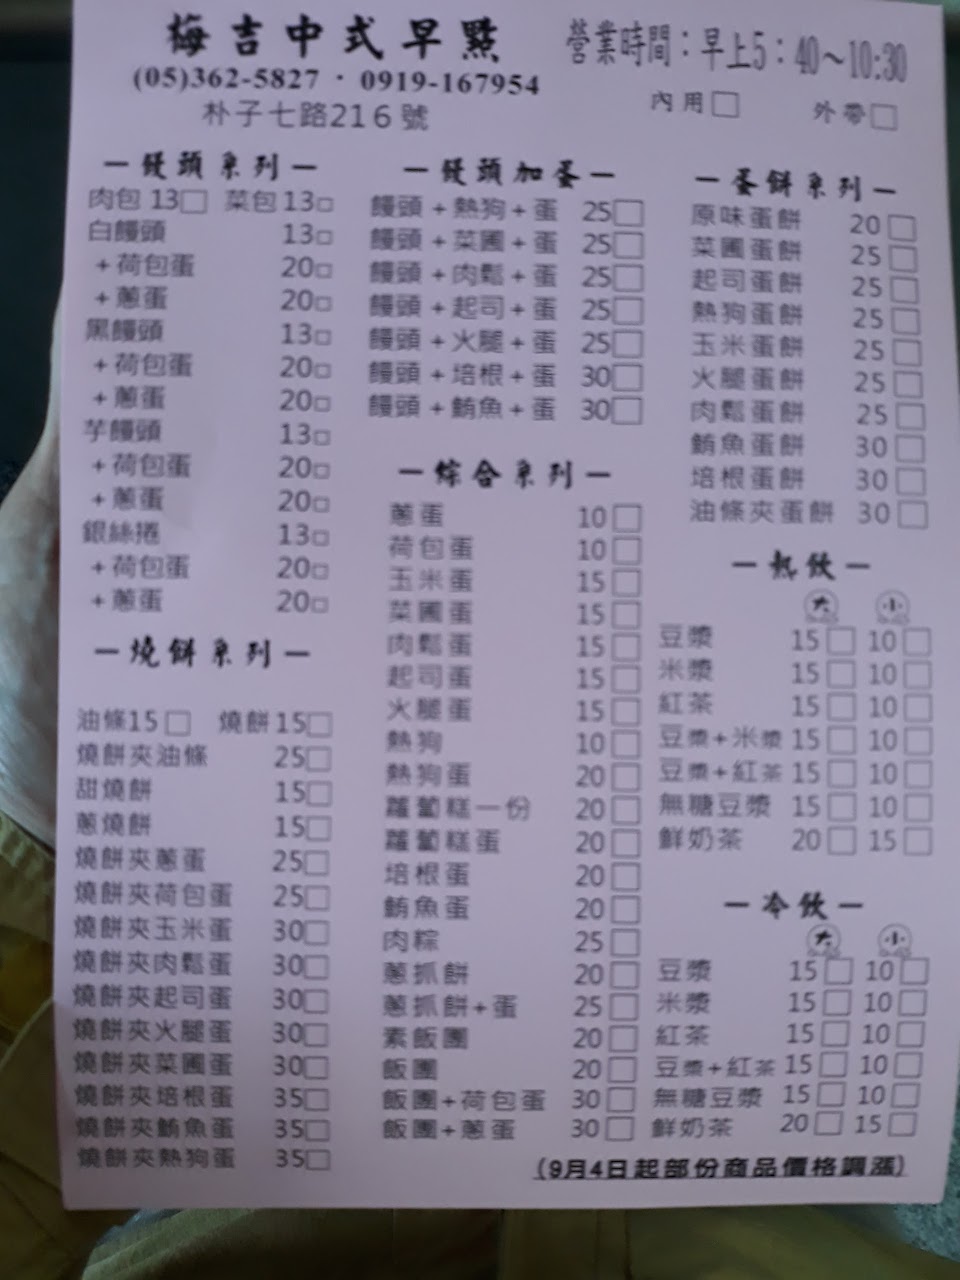 梅吉中式早點
(05)362-5827 · 0919-167954
朴子七路216號
營業時間：早上5：40～10:30
內用□ 外帶□
－饅頭系列－
肉包 13□ 菜包 13□
白饅頭 13□
+荷包蛋 20□
+蔥蛋 20□
黑饅頭 13□
+荷包蛋 20□
+蔥蛋 20□
芋饅頭 13□
+荷包蛋 20□
+蔥蛋 20□
銀絲捲 13□
+荷包蛋 20□
+蔥蛋 20□
－燒餅系列－
油條15□ 燒餅15□
燒餅夾油條 25□
甜燒餅 15□
蔥燒餅 15□
燒餅夾蔥蛋 25□
燒餅夾荷包蛋 25□
燒餅夾玉米蛋 30□
燒餅夾肉鬆蛋 30□
燒餅夾起司蛋 30□
燒餅夾火腿蛋 30□
燒餅夾菜圃蛋 30□
燒餅夾培根蛋 35□
燒餅夾鮪魚蛋 35□
燒餅夾熱狗蛋 35□
－饅頭加蛋－
饅頭+熱狗+蛋 25□
饅頭+菜圃+蛋 25□
饅頭+肉鬆+蛋 25□
饅頭+起司+蛋 25□
饅頭+火腿+蛋 25□
饅頭+培根+蛋 30□
饅頭+鮪魚+蛋 30□
－綜合系列－
蔥蛋 10□
荷包蛋 10□
玉米蛋 15□
菜圃蛋 15□
肉鬆蛋 15□
起司蛋 15□
火腿蛋 15□
熱狗 10□
熱狗蛋 20□
蘿蔔糕一份 20□
蘿蔔糕蛋 20□
培根蛋 20□
鮪魚蛋 20□
肉粽 25□
蔥抓餅 20□
蔥抓餅+蛋 25□
素飯團 20□
飯團 20□
飯團+荷包蛋 30□
飯團+蔥蛋 30□
－蛋餅系列－
原味蛋餅 20□
菜圃蛋餅 25□
起司蛋餅 25□
熱狗蛋餅 25□
玉米蛋餅 25□
火腿蛋餅 25□
肉鬆蛋餅 25□
鮪魚蛋餅 30□
培根蛋餅 30□
油條夾蛋餅 30□
－熱飲－
大 小
豆漿 15□ 10□
米漿 15□ 10□
紅茶 15□ 10□
豆漿+米漿 15□ 10□
豆漿+紅茶 15□ 10□
無糖豆漿 15□ 10□
鮮奶茶 20□ 15□
－冷飲－
大 小
豆漿 15□ 10□
米漿 15□ 10□
紅茶 15□ 10□
豆漿+紅茶 15□ 10□
無糖豆漿 15□ 10□
鮮奶茶 20□ 15□
(9月4日起部份商品價格調漲)